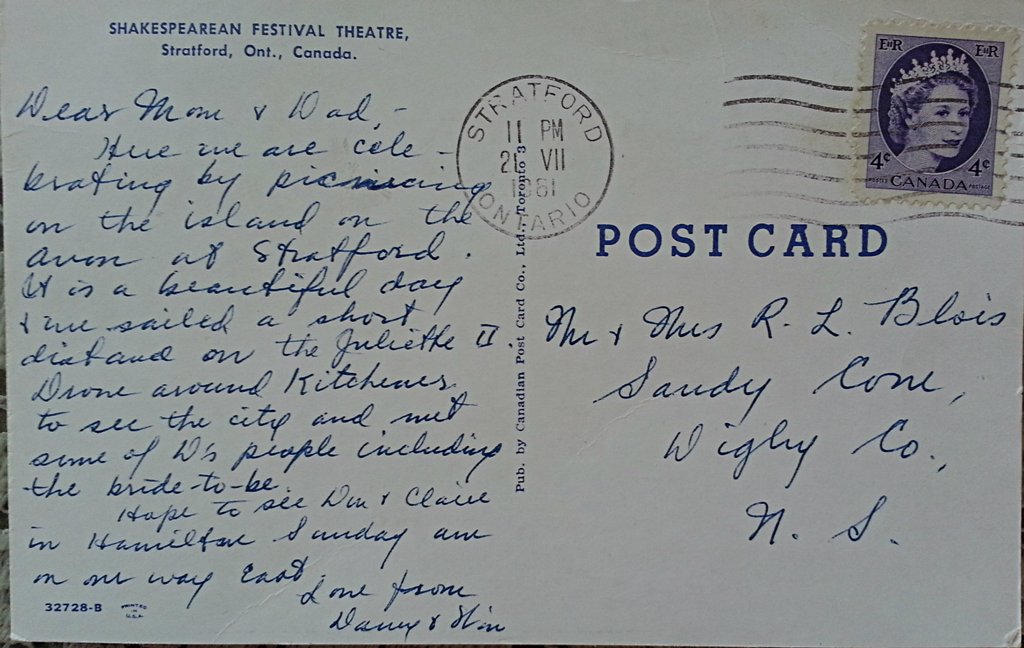 SHAKESPEAREAN FESTIVAL THEATRE,
Stratford, Ont., Canada.
Dear Mom & Dad, -
Here we are cele-
brating by picnicing
on the island on the
Avon at Stratford.
It is a beautiful day
& we sailed a short
distance on the Juliette II.
Drove around Kitchener
to see the city and met
some of D's people including
the bride-to-be.
Hope to see Don & Claire
in Hamilton Sunday
on our way East.
Love from
& Win
32728-B
PRINTED
IN
U.S.A.
Pub. by Canadian Post Card Co., Ltd., Toronto 3
STRATFORD
11 PM
21 VII
1961
ONTARIO
EIIR EIIR
4¢ 4¢
POSTES CANADA POSTAGE
POST CARD
Mr & Mrs R. L. Blois
Sandy Cove,
Digby Co.,
N. S.